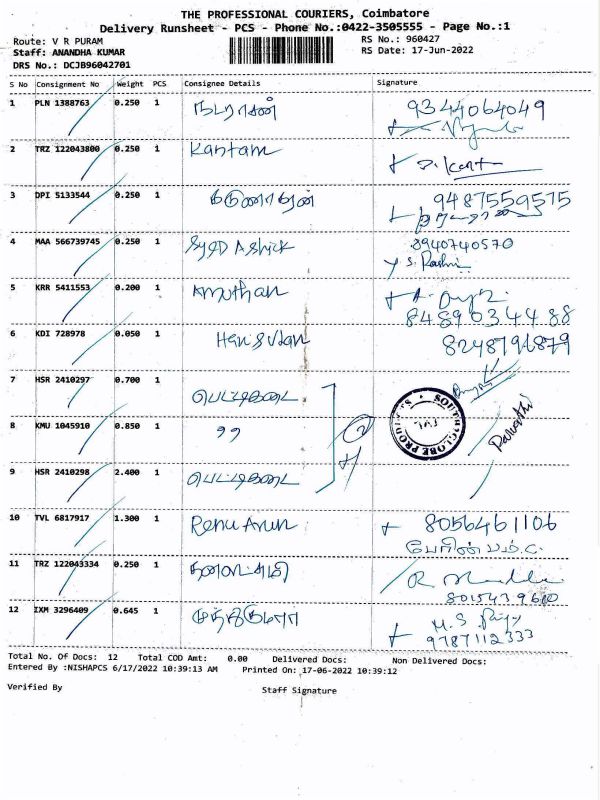 THE PROFESSIONAL COURIERS, Coimbatore
Delivery Runsheet - PCS - Phone No.:0422-3505555 - Page No.:1
Route: V R PURAM
RS No.: 960427
Staff: ANANDHA KUMAR
RS Date: 17-Jun-2022
DRS No.: DCJB96042701
S No Consignment No Weight PCS Consignee Details Signature
1 PLN 1388763 0.250 1 நடராசன் 9344064049
2 TRZ 122043800 0.250 1 Kantam
3 DPI 5133544 0.250 1 கருணாகரன் 9487559575
4 MAA 566739745 0.250 1 Syed Ashick 8940740570
S. Rashi
5 KRR 5411553 0.200 1 Amuthan
8489034488
6 KDI 728978 0.050 1
7 HSR 2410297 0.700 1 பெட்டிகடை
SOUTH GLOBE PRODUCTS
8 KMU 1045910 0.850 1 ,, 2
Parvathi
9 HSR 2410298 2.400 1 பெட்டிகடை
10 TVL 6817917 1.300 1 Renu Arun 8056461106
11 TRZ 122043334 0.250 1
12 IXM 3296409 0.645 1
9787112333
Total No. Of Docs: 12 Total COD Amt: 0.00 Delivered Docs: Non Delivered Docs:
Entered By :NISHAPCS 6/17/2022 10:39:13 AM Printed On: 17-06-2022 10:39:12
Verified By Staff Signature